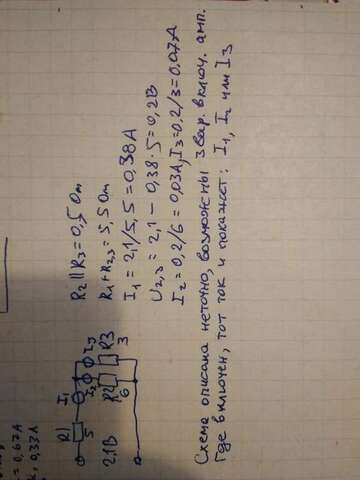 = 0,67А
, 0,33А
R1
5
I1
I2
I3
R2
6
R3
3
2,1В
R2 || R3 = 0,5 Ом
R1 + R2,3 = 5,5 Ом
I1 = 2,1/5,5 = 0,38А
U2,3 = 2,1 - 0,38·5 = 0,2В
I2 = 0,2/6 = 0,03А, I3 = 0,2/3 = 0.07А
Схема описана неточно, возможны 3 вар. включ. амп.
Где включен, тот ток и покажет: I1, I2 или I3